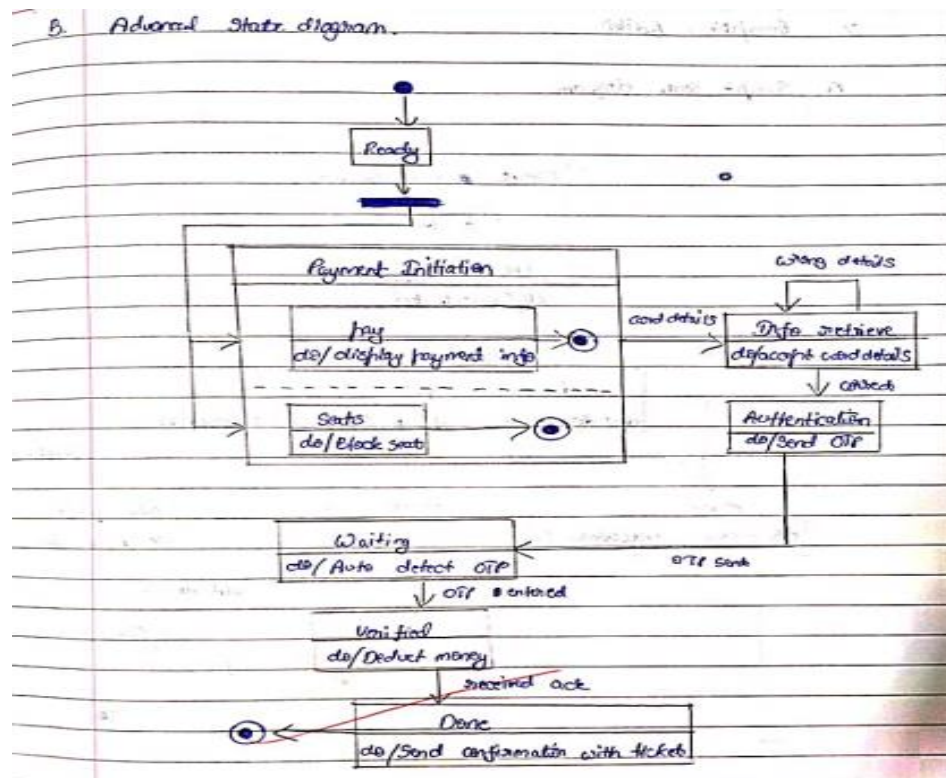 B. Advanced State diagram.
Ready
Payment Initiation
Pay
do/display payment info
Seats
do/Block seat
card details
wrong details
Info retrieve
do/accept card details
correct
Authentication
do/Send OTP
OTP sent
Waiting
do/Auto detect OTP
OTP entered
Verified
do/Deduct money
received ack
Done
do/Send confirmation with ticket